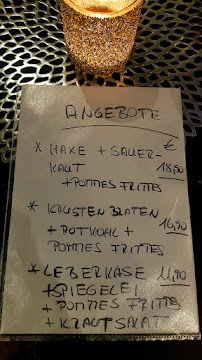 ANGEBOTE
€
* HAXE + SAUER-
KAUT 18,90
+ POMMES FRITTES
* KRUSTEN BRATEN
+ ROTKOHL + 16,90
POMMES FRITTES
* LEBERKÄSE 11,90
+ SPIEGELEI
+ POMMES FRITTES
+ KRAUTSALAT